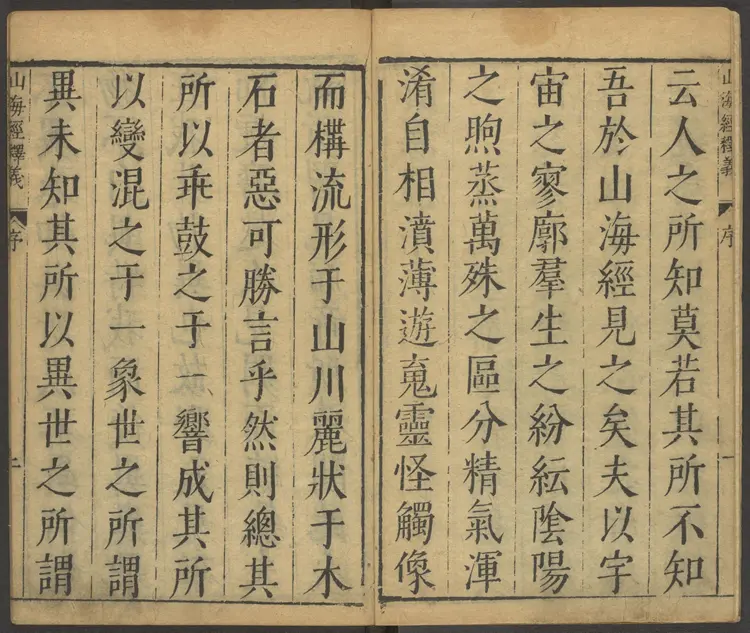 山海經釋義
序
一
云人之所知莫若其所不知
吾於山海經見之矣夫以宇
宙之寥廓羣生之紛紜陰陽
之煦蒸萬殊之區分精氣渾
淆自相濆薄遊䰟靈怪觸像
而構流形于山川麗狀于木
石者惡可勝言乎然則總其
所以乖鼓之于一響成其所
以變混之于一象世之所謂
異未知其所以異世之所謂
山海經釋義
序
二